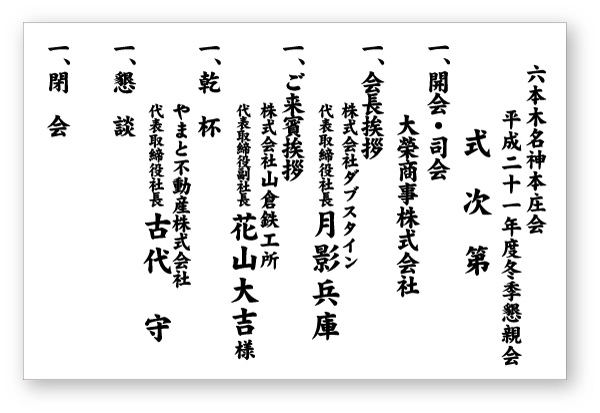 六本木名神本庄会
平成二十一年度冬季懇親会
式次第
一、開会・司会
大榮商事株式会社
一、会長挨拶
株式会社ダブスタイン
代表取締役社長 月影兵庫
一、ご来賓挨拶
株式会社山倉鉄工所
代表取締役副社長 花山大吉様
一、乾杯
やまと不動産株式会社
代表取締役社長 古代 守
一、懇談
一、閉会